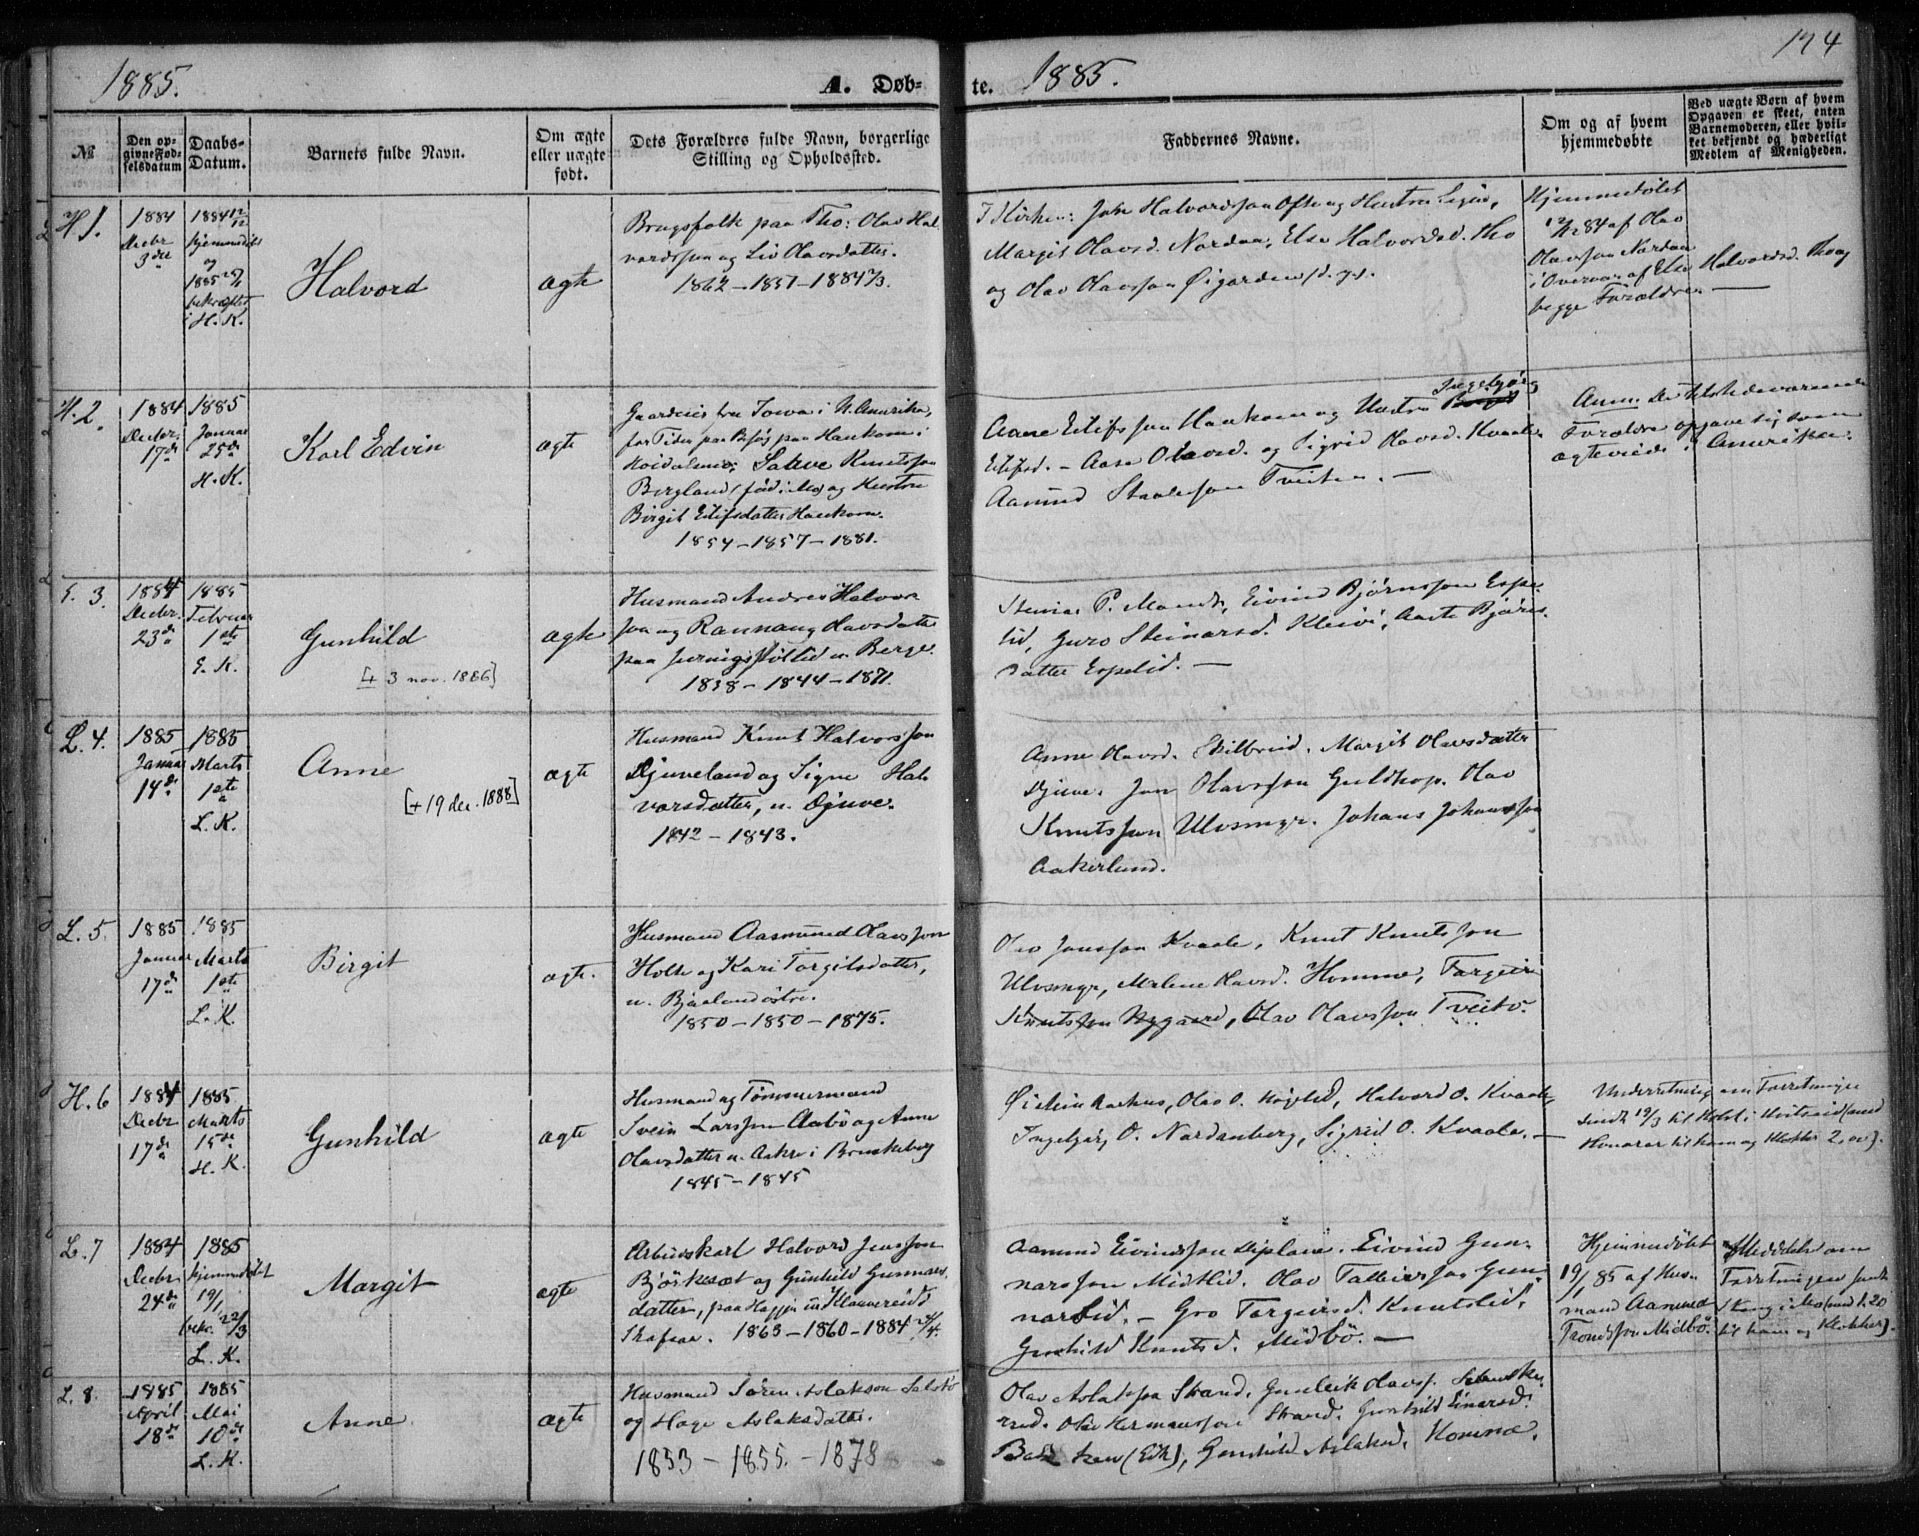 1885.
A. Døb-
te.
1885.
174
№
Den op-
givne Fød-
selsdatum
Daabs-
Datum.
Barnets fulde Navn.
Om ægte
eller uægte
født.
Dets Forældres fulde Navn, borgerlige
Stilling og Opholdssted.
Faddernes Navne.
Om og af hvem
hjemmedøbte
Ved uægte Børn af hvem
Opgaven er skeet, enten
Barnemoderen, eller hvil-
ket bekjendt og hæderligt
Medlem af Menigheden.
H 1.
1884
Decbr
3die
1884 12/12
hjemmedøbt
og
1885
bekræftet
i H. K.
Halvord
ægte
Brugsfolk paa Tho: Olav Hal-
vordssen og Liv Olavsdatter.
1862 – 1857 – 1884
I Kirken: John Halvordsson Ofte og Hustru Signe,
Margit Olavsd. Nordaa, Else Halvordsd. Tho
og Olav Olavsson Øigarden
Hjemmedøbt
12/12 84 af Olav
Olavsson Nordaa
i Overvær af Else Halvordsd. Tho og
begge Forældre —
H. 2.
1884
Decbr.
17de
1885
Januar
25de
H. K.
Karl Edvin
ægte
Gaardeier fra Iowa i N. Amerika,
for Tiden paa Besøg paa Haukom i
Hoidalsmo: Salve Knutsson
Bergland (född i Mo) og Hustru
Birgit Eilifsdatter Haukom.
1854 – 1857 – 1881.
Aane Eilifsson Haukom og Hustru Ingebjørg
Eilifsd. – Aase Olavsd. og Sigrid Olavsd. Kvaale
Aamund Staalesson Tveiten. —
Anm. De tilstedeværende
Forældre opgave sig som
ægteviede i Amerika.
E. 3.
1884
Decbr.
23de
1885
Februar
1ste
E. K.
Gunhild
[+ 3 nov. 1886]
ægte
Husmand Andres Halvors-
son og Rannaug Olavsdatter
paa u. Berge.
1838 – 1844 – 1871.
Steinar P. Mandt, Eivind Bjørnsson Espe-
lid, Guro Steinarsd. Kleivi, Aaste Bjørns-
datter Espelid. —
L. 4.
1885
Januar
14de
1885
Marts
1ste
L. K.
Anne
[+ 19 dec. 1888]
ægte
Husmand Knut Halvorsson
Djuveland og Signe Hal-
vorsdatter, u. Djuve.
1842 – 1843.
Anne Olavsd. Skilbreid. Margit Olavsdatter
Djuve. Jon Olavsson Guldhop. Olav
Knutsson Ulvsmyr. Johans Johansson
Aakerlund.
L. 5.
1885
Januar
17de
1885
Marts
1ste
L. K.
Birgit
ægte.
Husmand Aasmund Olavsson
Holte og Kari Torgilsdatter,
u. Bjaaland østre.
1850 – 1850 – 1875.
Olav Jonsson Kvaale, Knut Knutsson
Ulvsmyr, Malene Olavsd. Homme, Targeir
Knutsson Nygaard, Olav Olavsson Tveito.
H. 6
1884
Decbr
17de
1885
Marts
15de
H. K.
Gunhild
ægte
Husmand og Tømmermand
Svein Larsson Aabø og Anne
Olavsdatter u. Aakre i Brunkeberg
1845 – 1845
Øistein Aarhus, Olav O. Højelid, Halvord O. Kvaale,
Ingebjørg O. Nordenberg, Sigrid O. Kvaale. —
Underretning om Forretningen
sendt 19/3 til Holst i Hvitseid (med
Honorar til ham og Klokker 2,00).
L. 7
1884
Decbr
24de
1885
hjemmedøbt
19/1
bekr. 22/3
L. K.
Margit
ægte
Arbeidskarl Halvord Jensson
Bjørkesæt og Gunhild Gunnars-
datter, paa Høgje u. Klauvreid i
Skafsaa. 1863 – 1860 – 1884
Aamund Eivindsson Liplane. Eivind Gun-
narsson Midtlid. Olav Talleivsson Gun-
narslid. – Gro Torgeirsd. Knutslid,
Gunhild Knutsd. Midbø. —
Hjemmedøbt
19/1 85 af Hus-
mand Aanund
Trondsson Midbø.
Meddelelse om
Forretningen sendt
Stang i Mo (med 1.20
til ham og Klokker).
L. 8.
1885
April
18de
1885
Mai
10de
L. K.
Anne
ægte
Husmand Søren Aslakson
og Hæge Aslaksdatter.
1853 – 1855. – 1878
Olav Aslaksson Strand. Gunleik Olavs.
Hermansson Strand. Gunhild Einarsd.
(Eik), Gunhild Aslaksd. Homme.